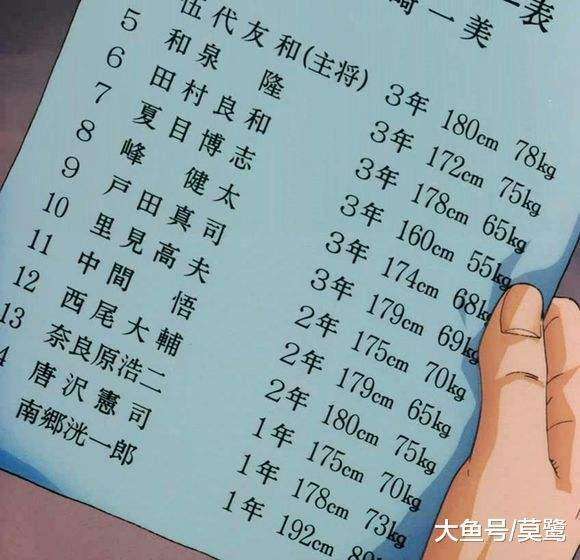 表
崎一美
伍代友和(主将) 3年 180cm 78kg
5 和泉隆 3年 172cm 75kg
6 田村良和 3年 178cm 65kg
7 夏目博志 3年 160cm 55kg
8 峰健太 3年 174cm 68kg
9 戸田真司 3年 179cm 69kg
10 里見高夫 2年 175cm 70kg
11 中間悟 2年 179cm 65kg
12 西尾大輔 2年 180cm 75kg
13 奈良原浩二 1年 175cm 70kg
4 唐沢憲司 1年 178cm 73kg
南郷洸一郎 1年 192cm
大鱼号/莫鹭